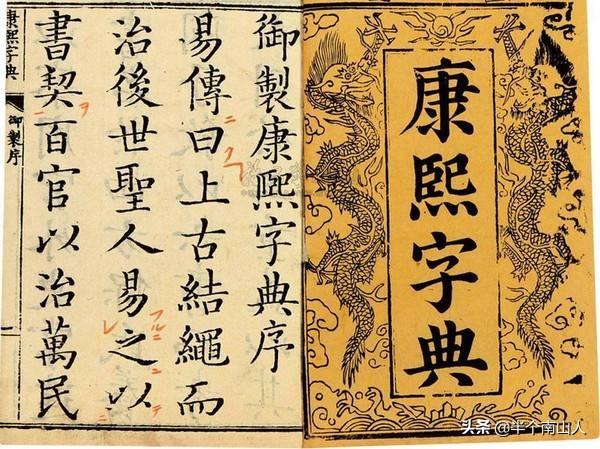 康熙字典
御製康熙字典序
易傳曰上古結繩而
治後世聖人易之以
書契百官以治萬民
康熙字典
御製序
头条 @半个南山人